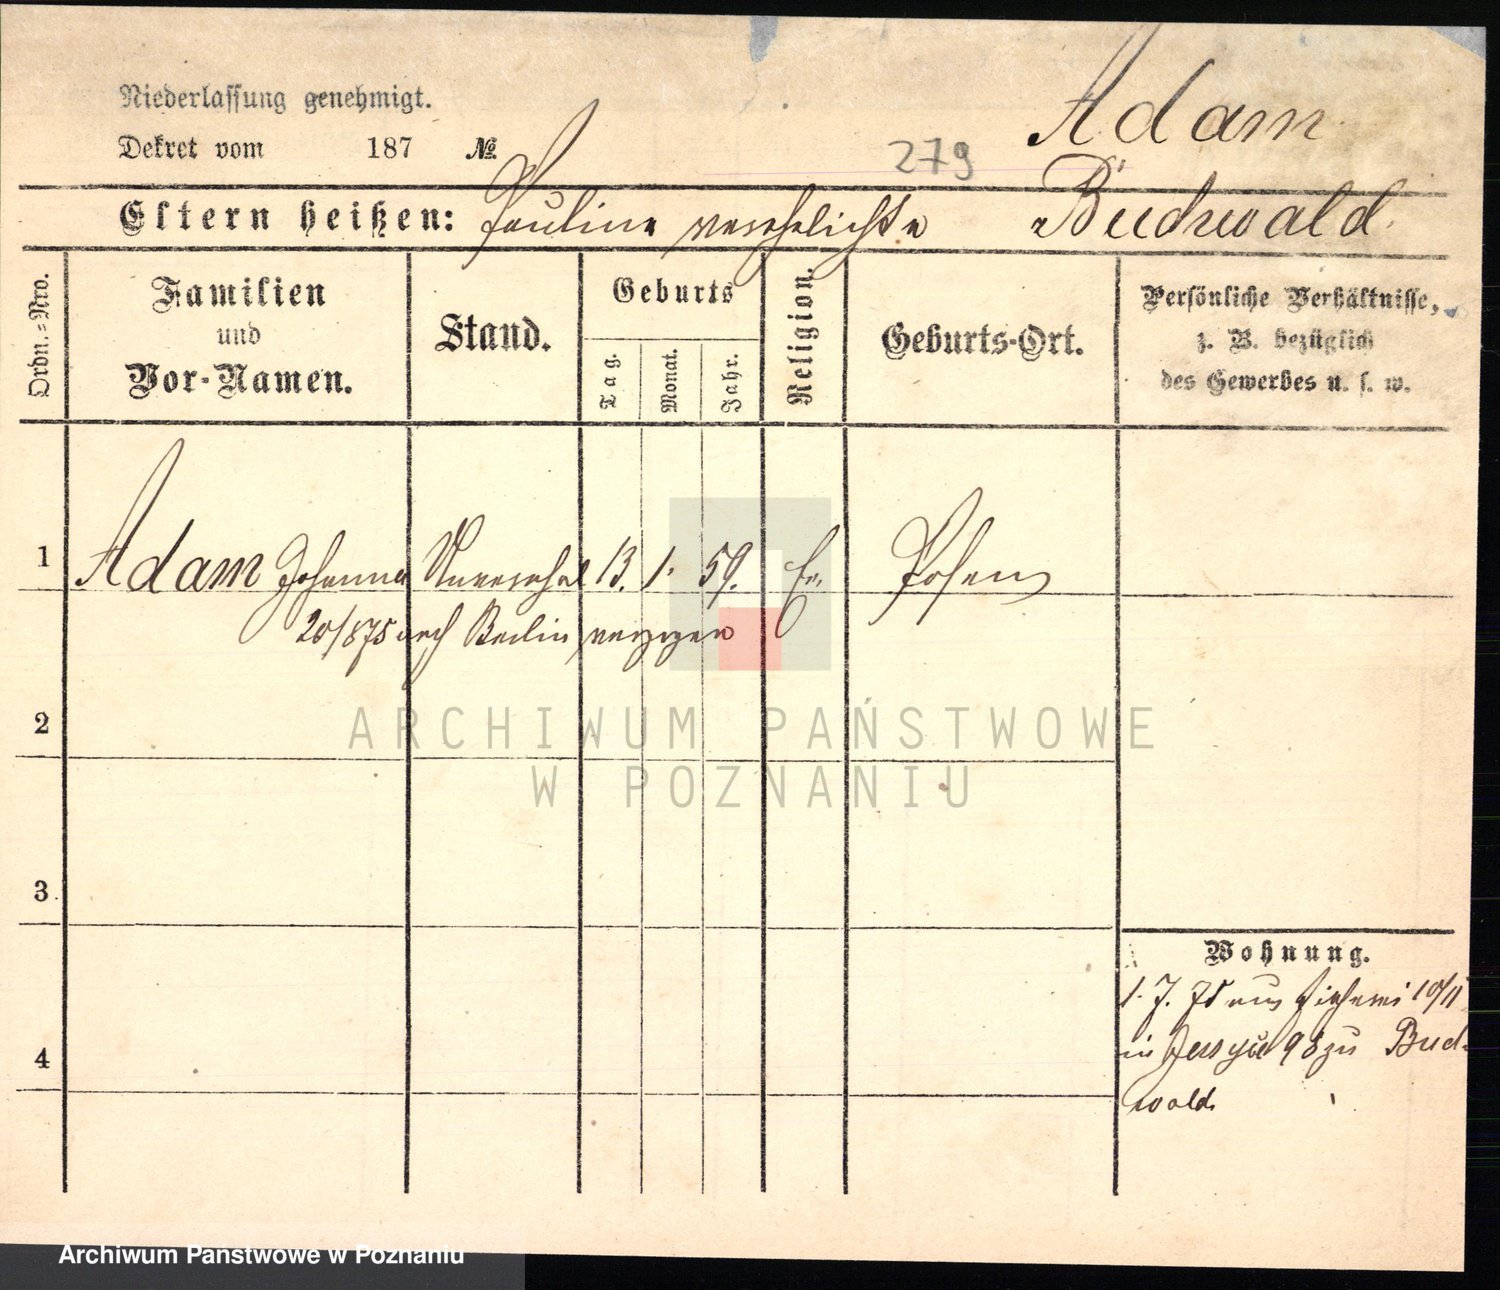 Niederlassung genehmigt.
Dekret vom 187 №
279
Adam
Eltern heißen: Pauline verehelichte Budwald
Ordn.=Nro.
Familien
und
Vor-Namen.
Stand.
Geburts
Tag.
Monat.
Jahr.
Religion.
Geburts-Ort.
Persönliche Verhältnisse,
z. B. bezüglich
des Gewerbes u. s. w.
1 Adam Johanna Unverehel 13. 1. 59. Ev. Posen
20/875 nach Berlin verzogen
2
3
4
Wohnung.
1. 7. 75 aus Fischerei 10/11
in 98 zu Bud-
wald
ARCHIWUM PAŃSTWOWE
W POZNANIU
Archiwum Państwowe w Poznaniu